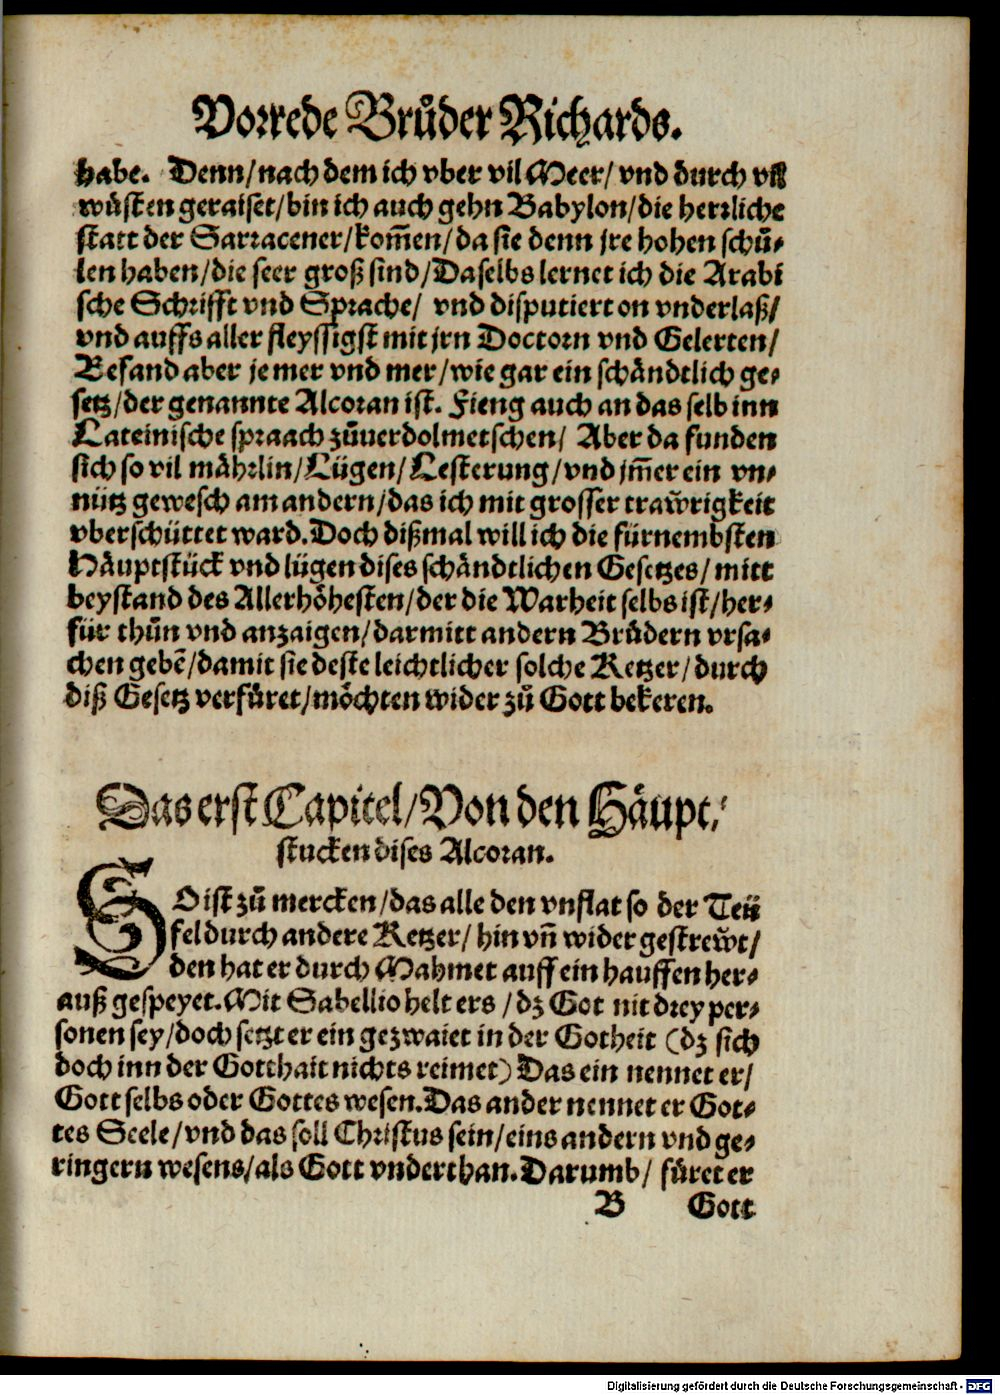 Vorrede Brůder Richards.
habe. Denn/nach dem ich vber vil Meer/ vnd durch vil
wüsten geraiset/bin ich auch gehn Babylon/die herrliche
statt der Sarracener/kom̃en/da sie denn jre hohen schů-
len haben/die seer groß sind/Daselbs lernet ich die Arabi
sche Schrifft vnd Sprache/ vnd disputiert on vnderlaß/
vnd auffs aller fleyssigst mit jrn Doctorn vnd Gelerten/
Befand aber je mer vnd mer/wie gar ein schändtlich ge-
setz/der genannte Alcoran ist. Fieng auch an das selb inn
Lateinische spraach zůuerdolmetschen/ Aber da funden
sich so vil mährlin/Lügen/Lesterung/vnd jm̃er ein vn-
nütz gewesch am andern/das ich mit grosser trawrigkeit
vberschüttet ward. Doch dißmal will ich die fürnembsten
Häuptstück vnd lügen dises schändtlichen Gesetzes/ mitt
beystand des Allerhöhesten/der die Warheit selbs ist/her-
für thůn vnd anzaigen/darmitt andern Brüdern vrsa-
chen gebẽ/damit sie deste leichtlicher solche Ketzer/durch
diß Gesetz verfüret/möchten wider zů Gott bekeren.
Das erst Capitel/Von den Häupt-
stucken dises Alcoran.
SO ist zů mercken/das alle den vnflat so der Teü
fel durch andere Ketzer/ hin vñ wider gestrewt/
den hat er durch Mahmet auff ein hauffen her-
auß gespeyet. Mit Sabellio helt ers /dz Got nit drey per-
sonen sey/doch setzt er ein gezwaiet in der Gotheit (dz sich
doch inn der Gotthait nichts reimet) Das ein nennet er/
Gott selbs oder Gottes wesen. Das ander nennet er Got-
tes Seele/vnd das soll Christus sein/eins andern vnd ge-
ringern wesens/als Gott vnderthan. Darumb/ füret er
B Gott
Digitalisierung gefördert durch die Deutsche Forschungsgemeinschaft - DFG